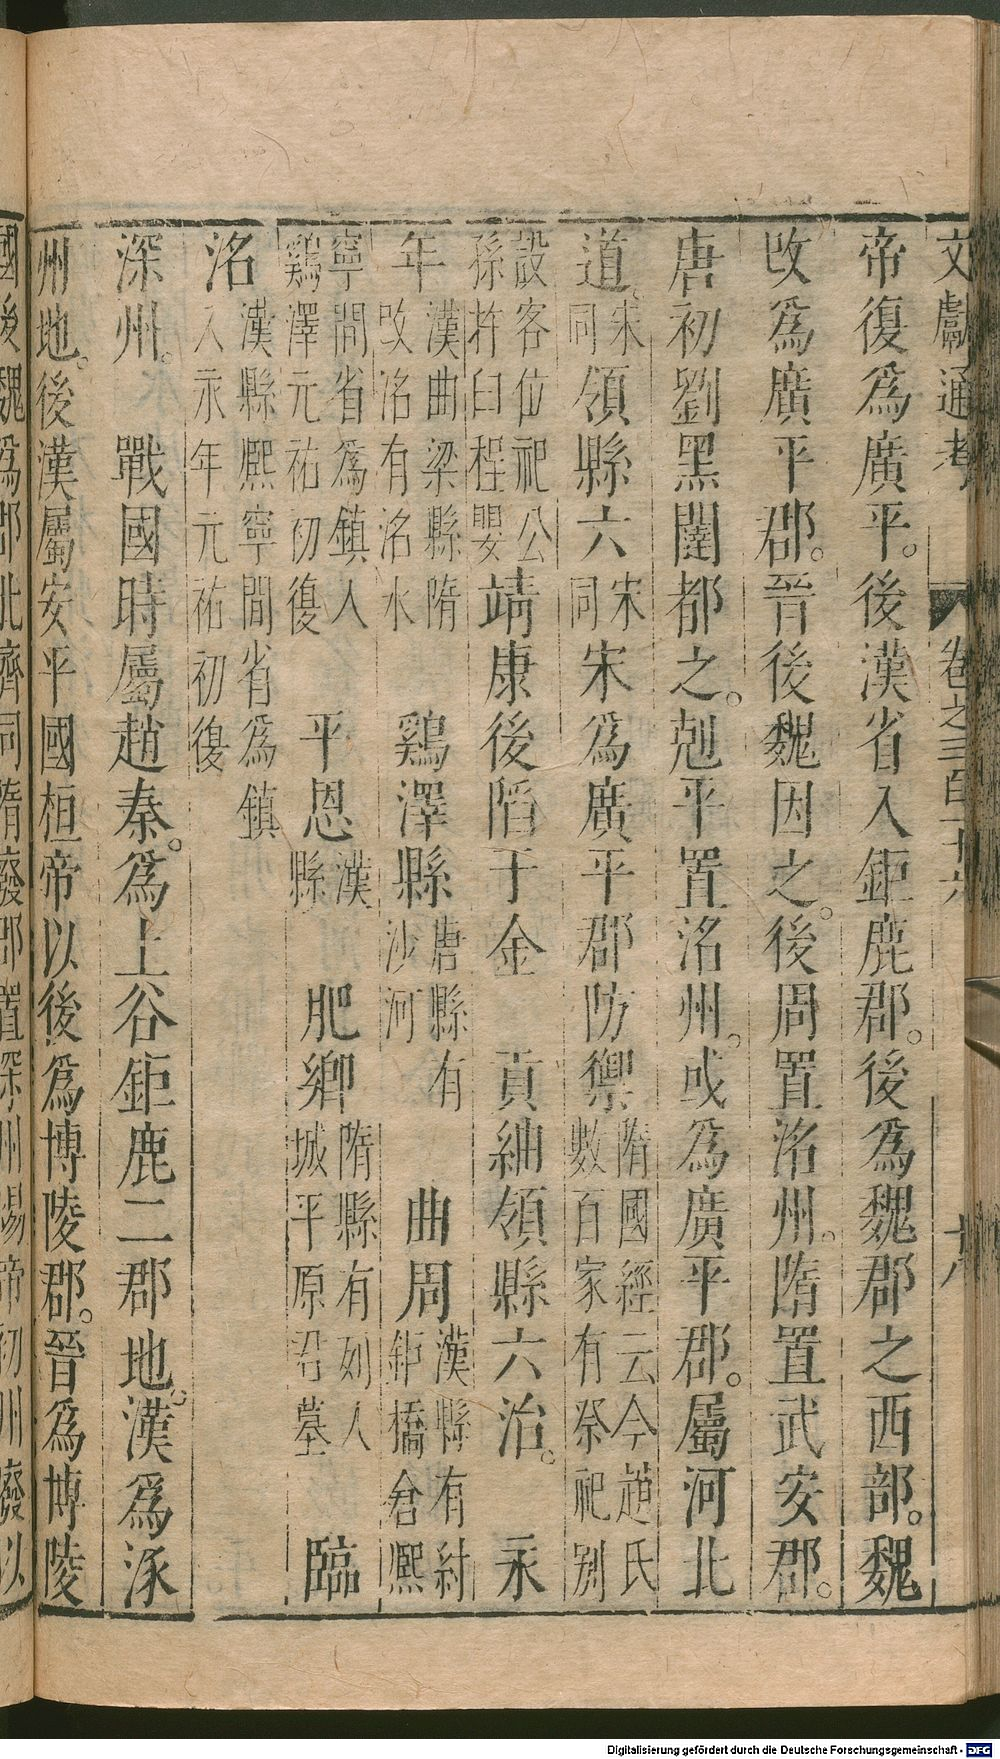 文獻通考 卷之三百十六 十八
帝復為廣平。後漢省入鉅鹿郡。後為魏郡之西部。魏
改為廣平郡。晉後魏因之。後周置洺州。隋置武安郡。
唐初劉黑闥都之。尅平置洺州。或為廣平郡。屬河北
道。宋同領縣六宋同宋為廣平郡防禦隋國經云今趙氏數百家有祭祀别
設客位祀公孫杵臼程嬰靖康後陷于金 貢紬領縣六治。 永
年漢曲梁縣隋改洺有洺水 鷄澤縣唐縣有沙河 曲周漢縣有紂鉅橋倉熙
寧間省為鎮入鷄澤元祐初復 平恩漢縣 肥鄉隋縣有列人城平原君墓 臨
洺漢縣熙寧間省為鎮入永年元祐初復
深州。 戰國時屬趙秦。為上谷鉅鹿二郡地。漢為涿
州地。後漢屬安平國桓帝以後為博陵郡。晉為博陵
國後魏為郡北齊同隋廢郡置深州煬帝初州廢以
Digitalisierung gefördert durch die Deutsche Forschungsgemeinschaft - DFG